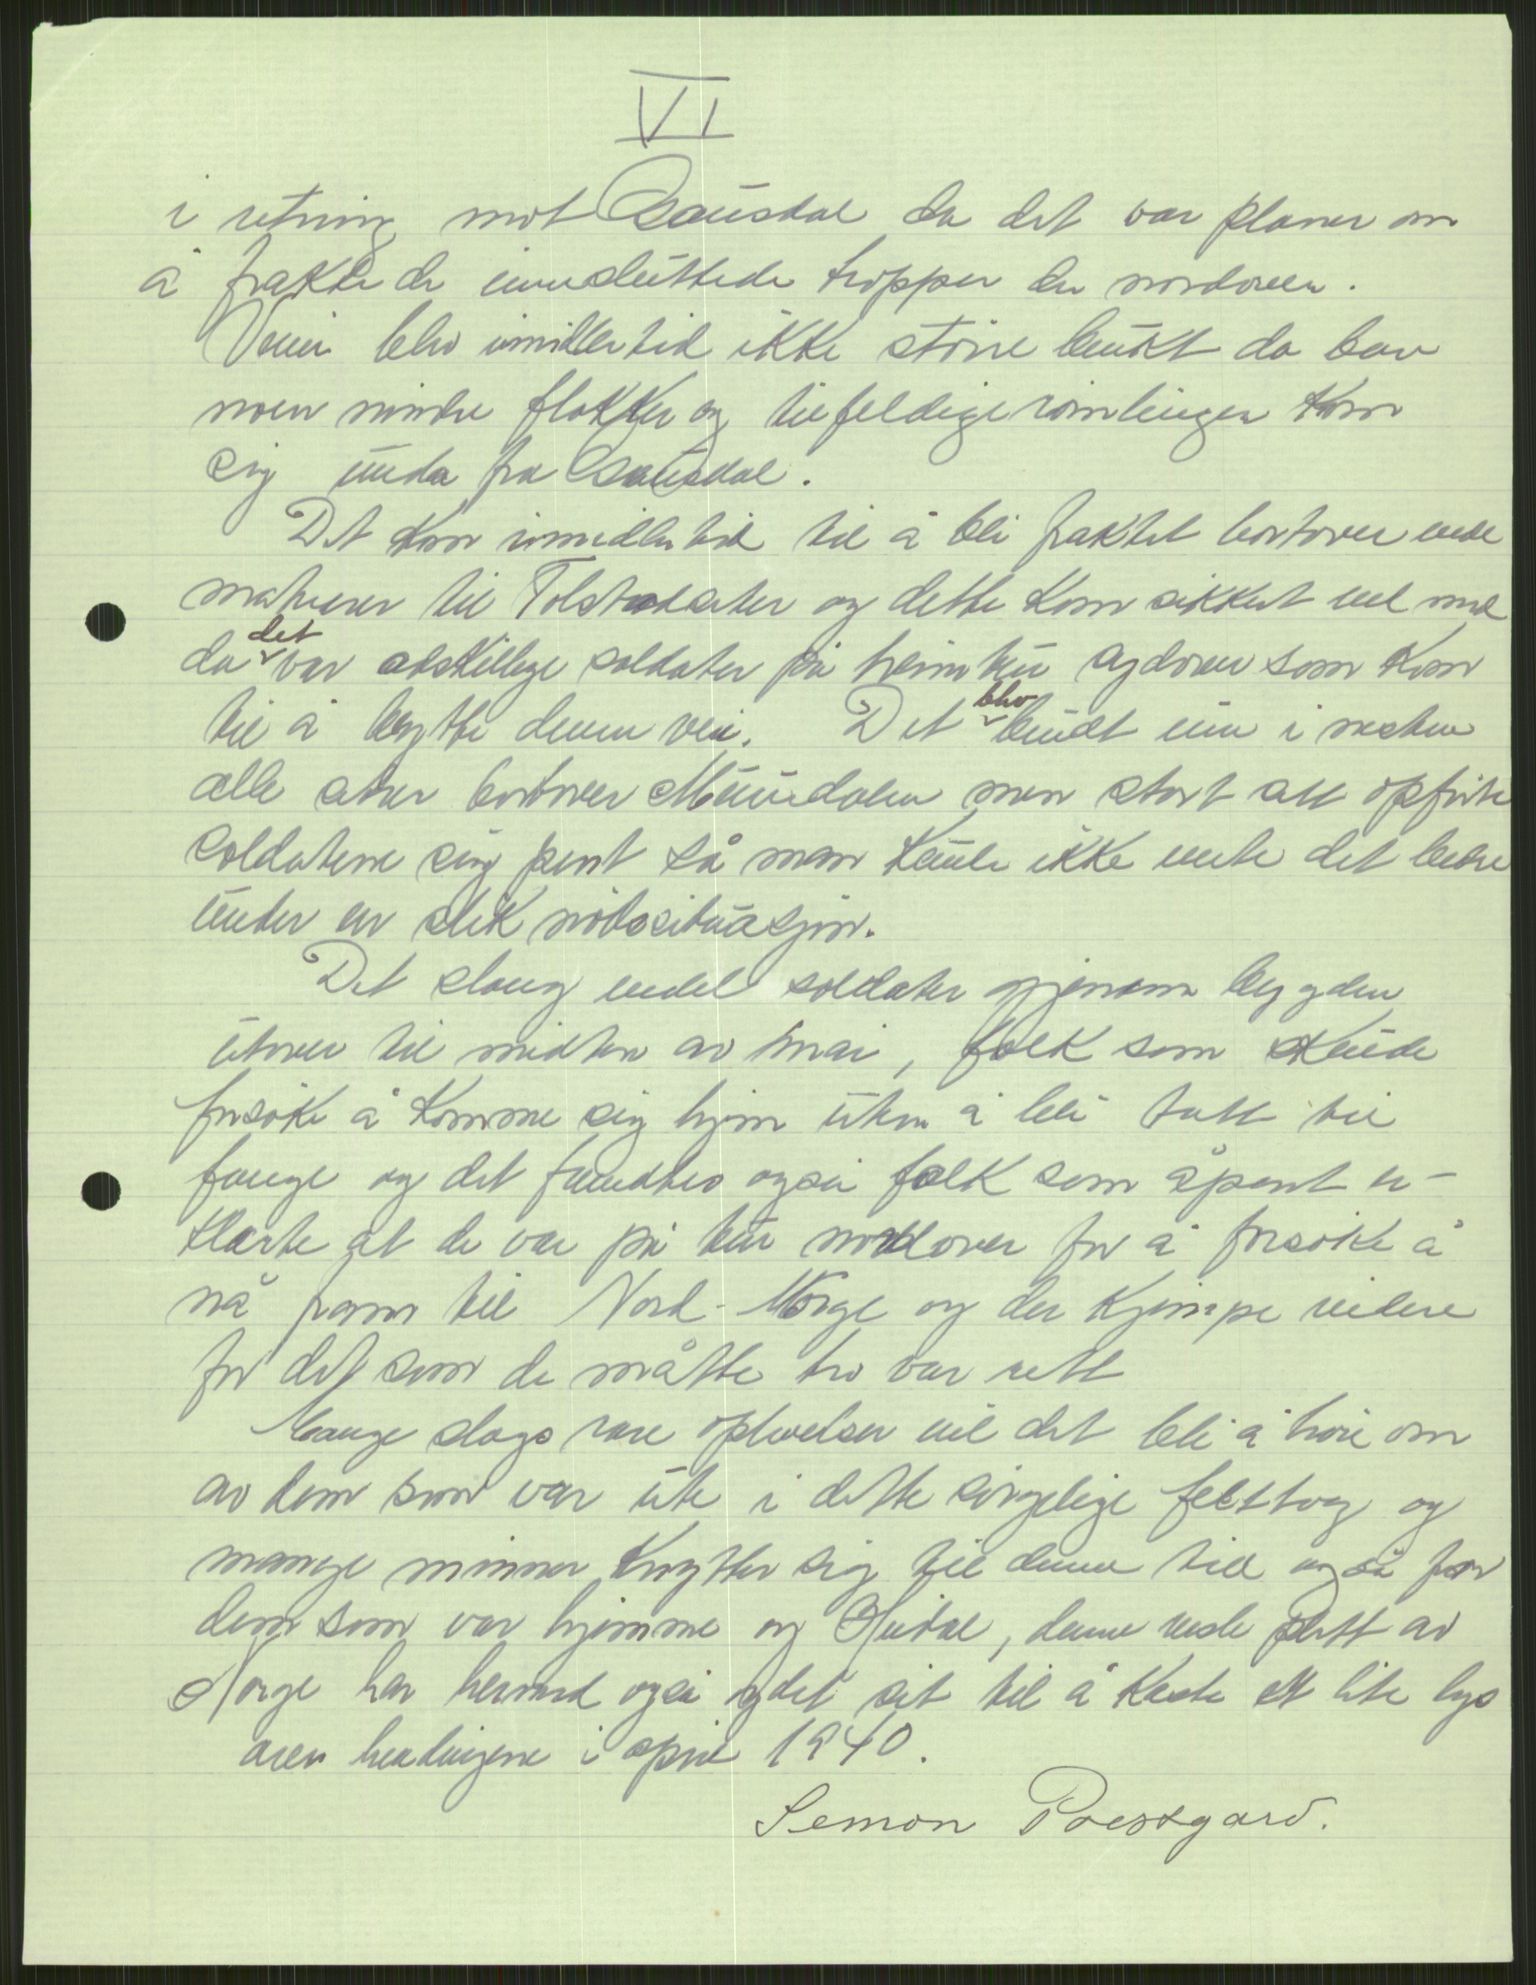 VI
i retning mot Gausdal da det var planer om
å frakte de innesluttede tropper der nordover.
Veien blev imidlertid ikke større brukt da bare
noen mindre flokker og tilfeldige rømlinger kom
sig unda fra Gausdal.
Det kom imidlertid til å bli fraktet bortover endel
matvarer til Tolstadseter og dette kom sikkert vel med
da det var adskillige soldater på heimtur sydover som kom
til å benytte denne vei. Det blev brudt inn i nesten
alle setrer bortover Murudalen men stort sett opførte
soldatene sig pent så man kunde ikke vente det bedre
under en slik nødssituasjon.
Det slang endel soldater gjennem bygden
utover til midten av mai, folk som skulde
forsøke å komme sig hjem uten å bli tatt til
fange og det fandtes også folk som åpent er-
klærte at de var på tur nordover for å forsøke å
nå fram til Nord-Norge og der kjempe videre
for det som de måtte tro var rett
Mange slags rare oplevelser vil det bli å høre om
av dem som var ute i dette sørgelige felttog og
mange minner knytter sig til denne tid også for
dem som var hjemme og Heidal, denne vesle plett av
Norge har hermed også ydet sit til å kaste et lite lys
over hendingene i april 1940.
Semon Prestgard.